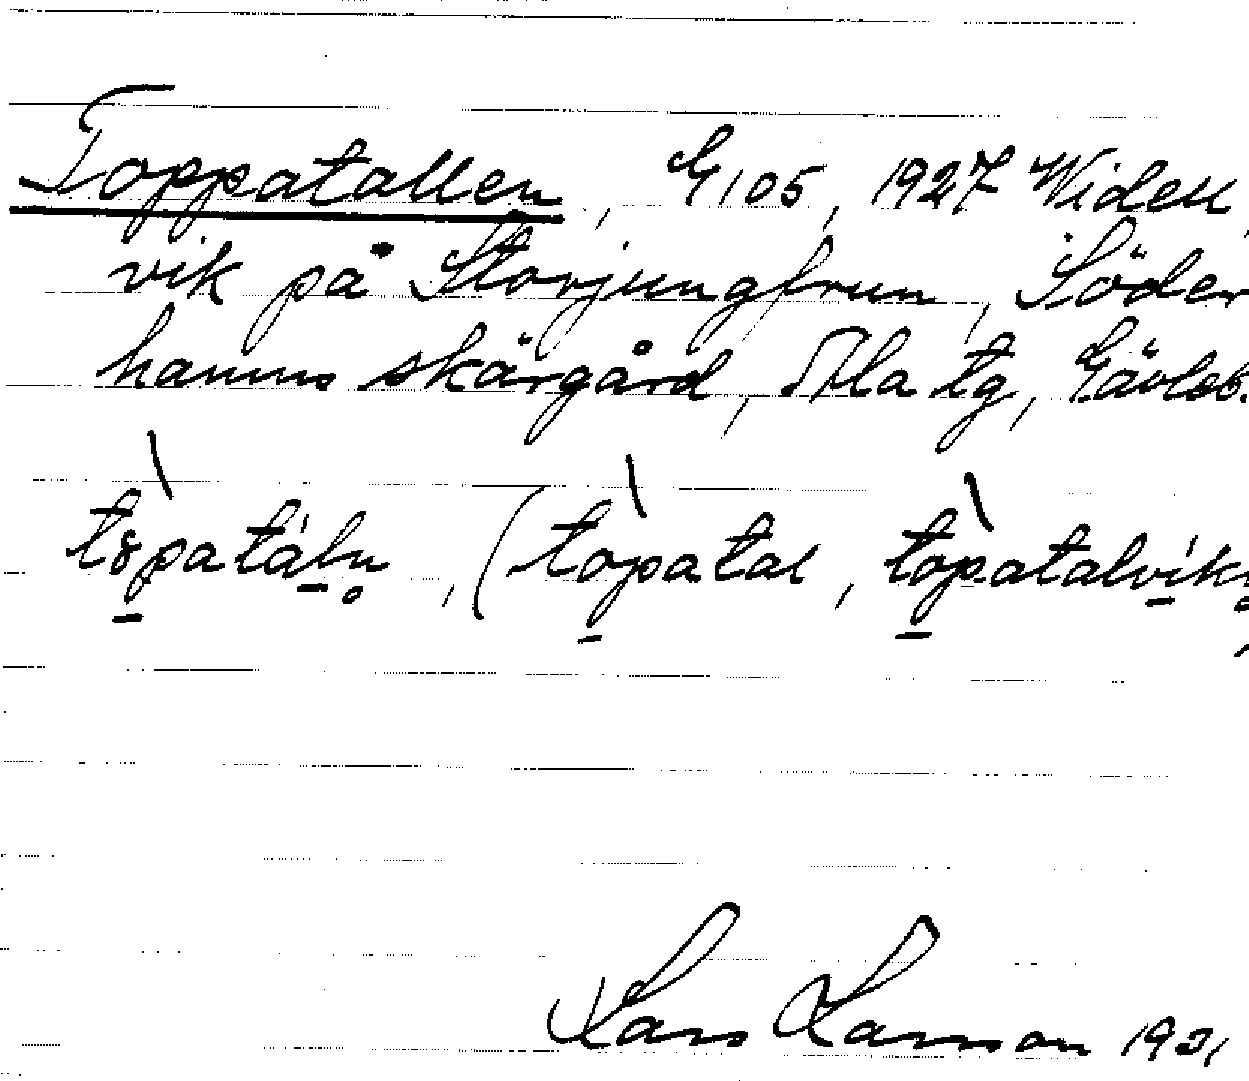 Toppatallen, G 105, 1927 Widell,
vik på Storjungfrun, Söder
hamns skärgård, Ala tg, Gävleb.
tòpatáln, (tòpatal, tòpatalvík
Lars Larsson 1931